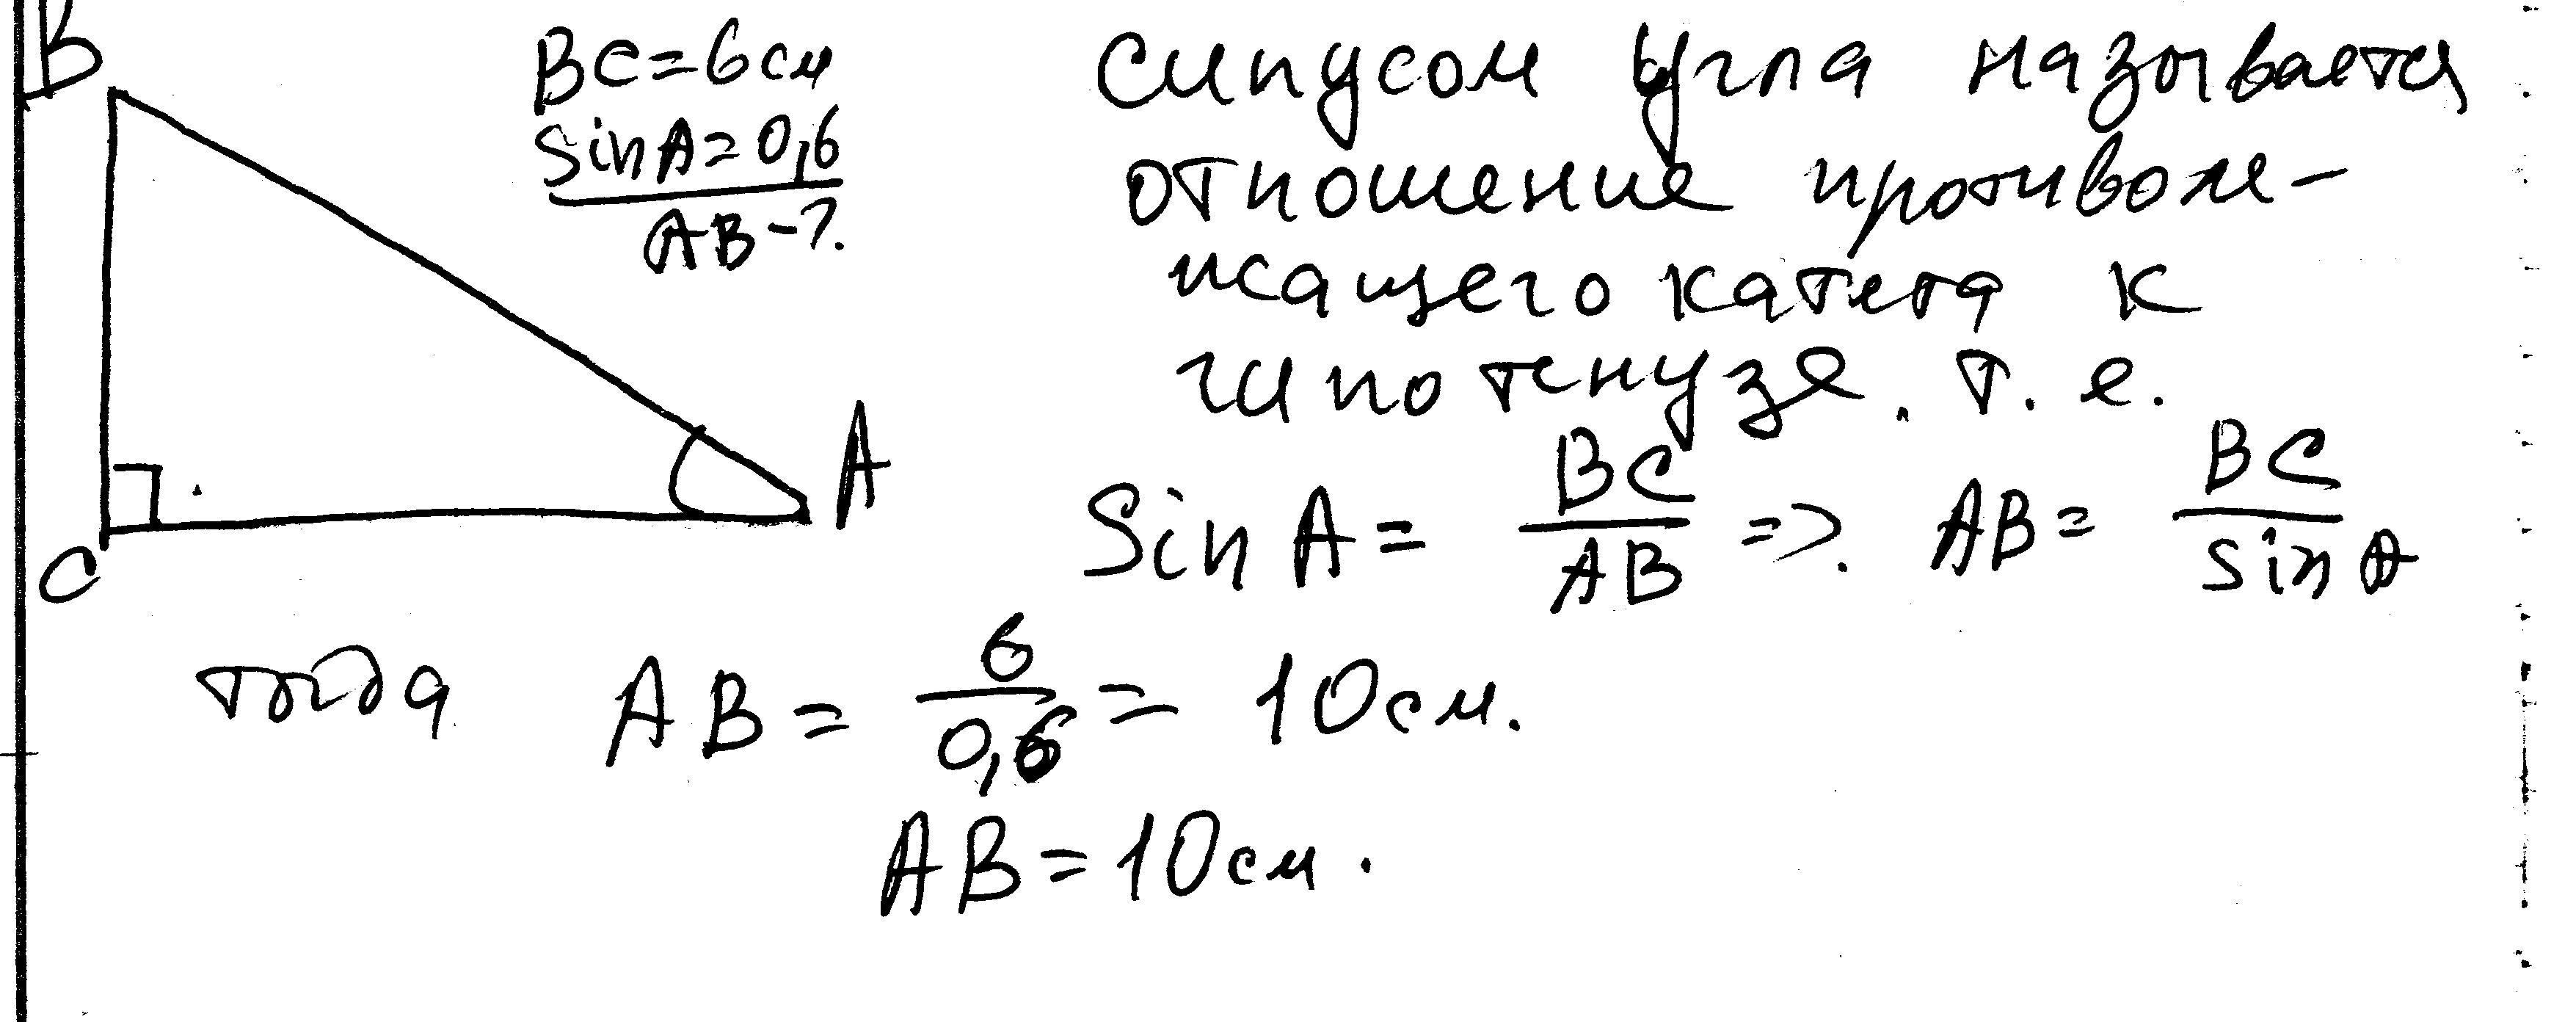 B
BC=6см
SinA=0,6
AB-?.
Синусом угла называется
отношение противоле-
жащего катета к
гипотенузе. т. е.
A
C
Sin A = BC/AB =>. AB = BC/sin A
тогда AB = 6/0,6 = 10см.
AB=10см.